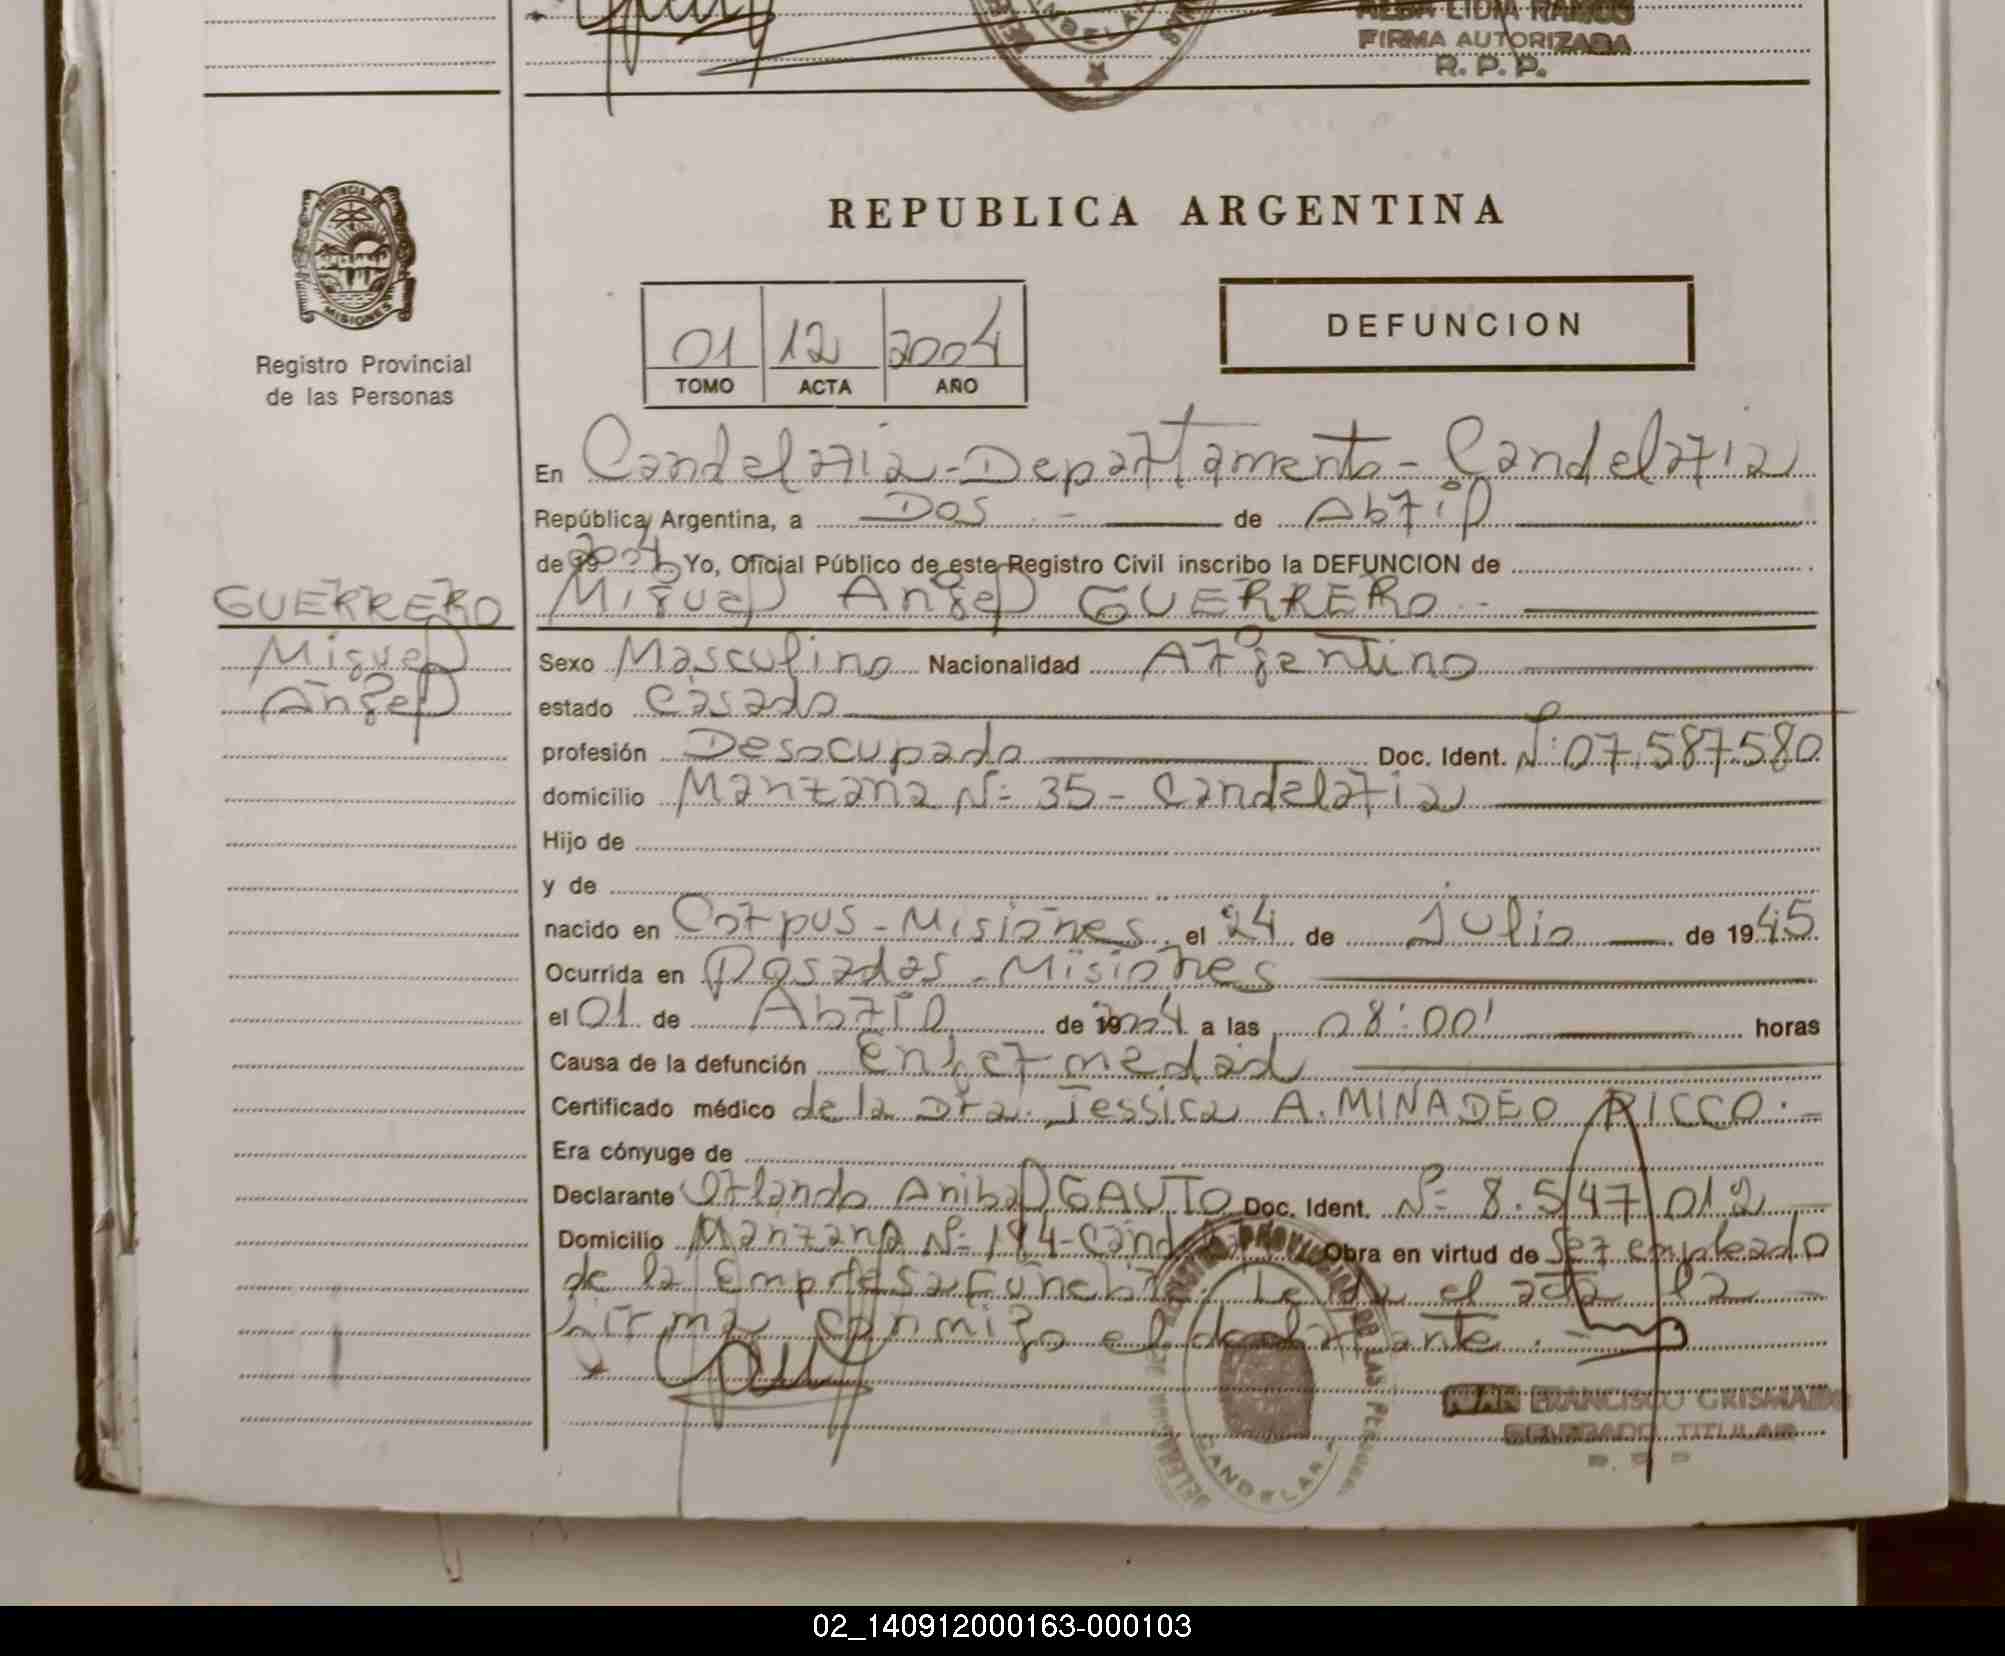 ALBA LIDIA RAMOS
FIRMA AUTORIZADA
R. P. P.
PROVINCIA DE
MISIONES
Registro Provincial
de las Personas
REPUBLICA ARGENTINA
01 12 2004
TOMO ACTA AÑO
DEFUNCION
En Candelaria - Departamento - Candelaria
República Argentina, a Dos - de Abril
de 2004 Yo, Oficial Público de este Registro Civil inscribo la DEFUNCION de
GUERRERO
Miguel
Angel
Miguel Angel GUERRERO -
Sexo Masculino Nacionalidad Argentino
estado Casado
profesión Desocupado Doc. Ident. Nº 07.587.580
domicilio Manzana Nº 35 - Candelaria
Hijo de
y de
nacido en Corpus - Misiones el 24 de Julio de 1945
Ocurrida en Posadas - Misiones
el 01 de Abril de 2004 a las 08:00' horas
Causa de la defunción Enfermedad
Certificado médico de la Dra. Jessica A. MINADEO RICCO. -
Era cónyuge de
Declarante Orlando Anibal GAUTO Doc. Ident. Nº 8.547.012
Domicilio Manzana Nº 194 - Cand Obra en virtud de ser empleado
de la Empresa Funebre. Leida el acta la
firma conmigo el declarante. -
FRANCISCO GRISMADO
DELEGADO TITULAR
CANDELARIA
02_140912000163-000103